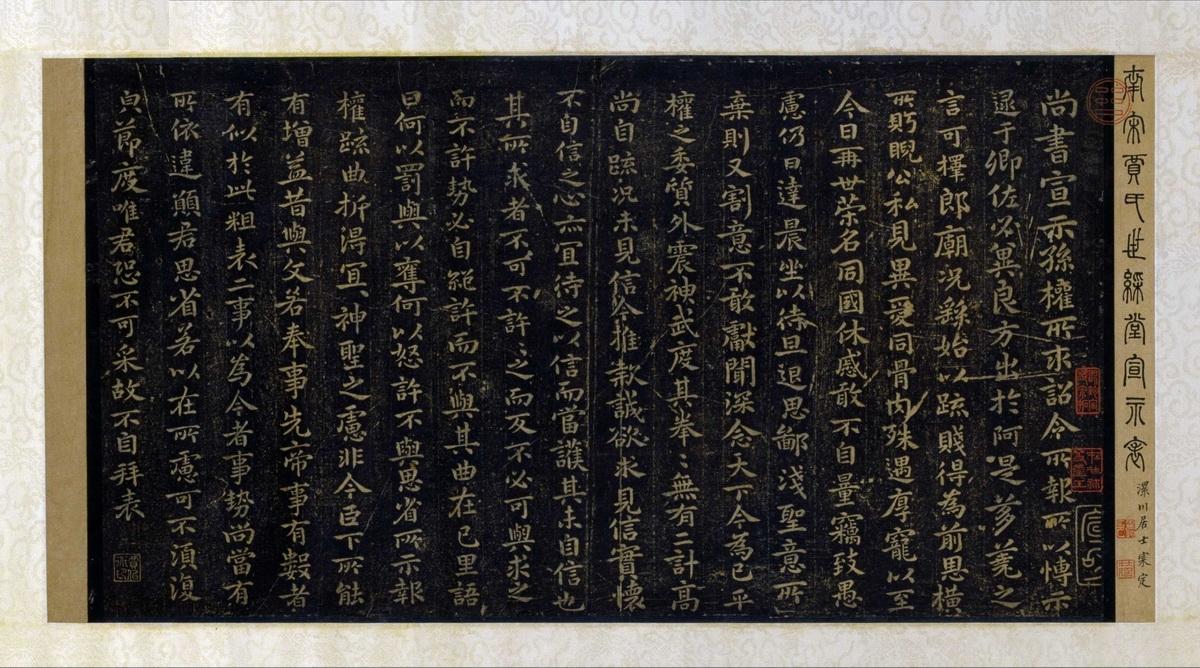 南宋賈氏世綵堂宣示表
川居士寀定
尚書宣示孫權所求詔令所報所以博示
逮于卿佐必冀良方出於阿是芻蕘之
言可擇郎廟況繇始以疏賤得為前恩橫
所眄睨公私見異愛同骨肉殊遇厚寵以至
今日再世榮名同國休慼敢不自量竊致愚
慮仍日達晨坐以待旦退思鄙淺聖意所
棄則又割意不敢獻聞深念天下今為已平
權之委質外震神武度其拳〻無有二計高
尚自疏況未見信今推款誠欲求見信實懷
不自信之心亦宜待之以信而當護其未自信也
其所求者不可不許〻之而反不必可與求之
而不許勢必自絕許而不與其曲在己里語
曰何以罰與以奪何以怒許不與思省所示報
權疏曲折得宜〻神聖之慮非今臣下所能
有增益昔與文若奉事先帝事有數者
有似於此粗表二事以為今者事勢尚當有
所依違願君思省若以在所慮可不須復
白節度唯君恐不可采故不自拜表